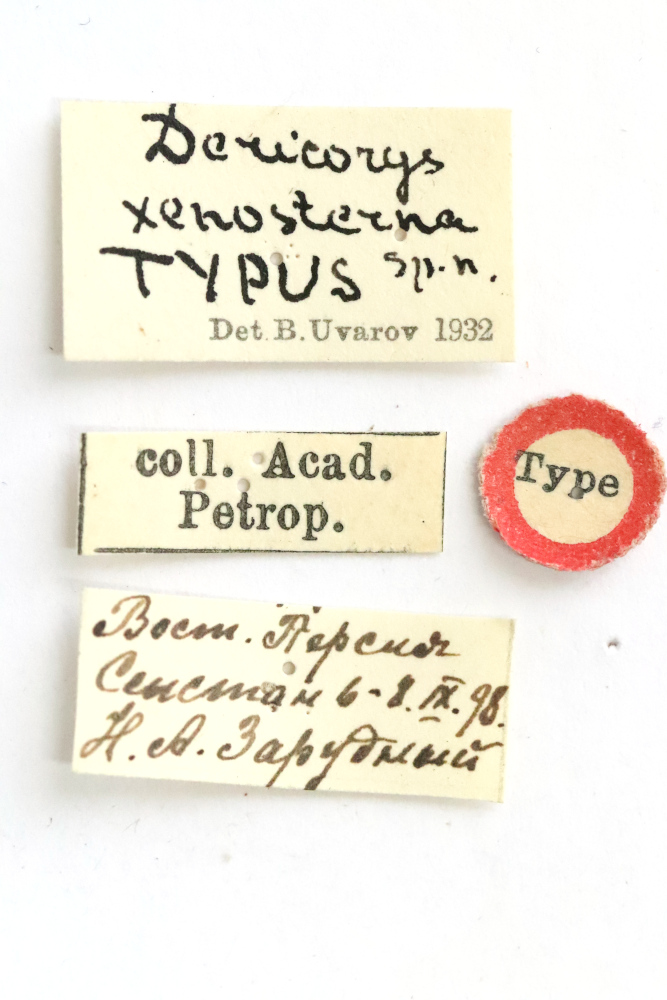 Dericorys
xenosterna
TYPUS sp.n.
Det. B. Uvarov 1932
coll. Acad.
Petrop.
Type
Вост. Персия
Сеистан 6-8.IX.98.
Н. А. Зарудный